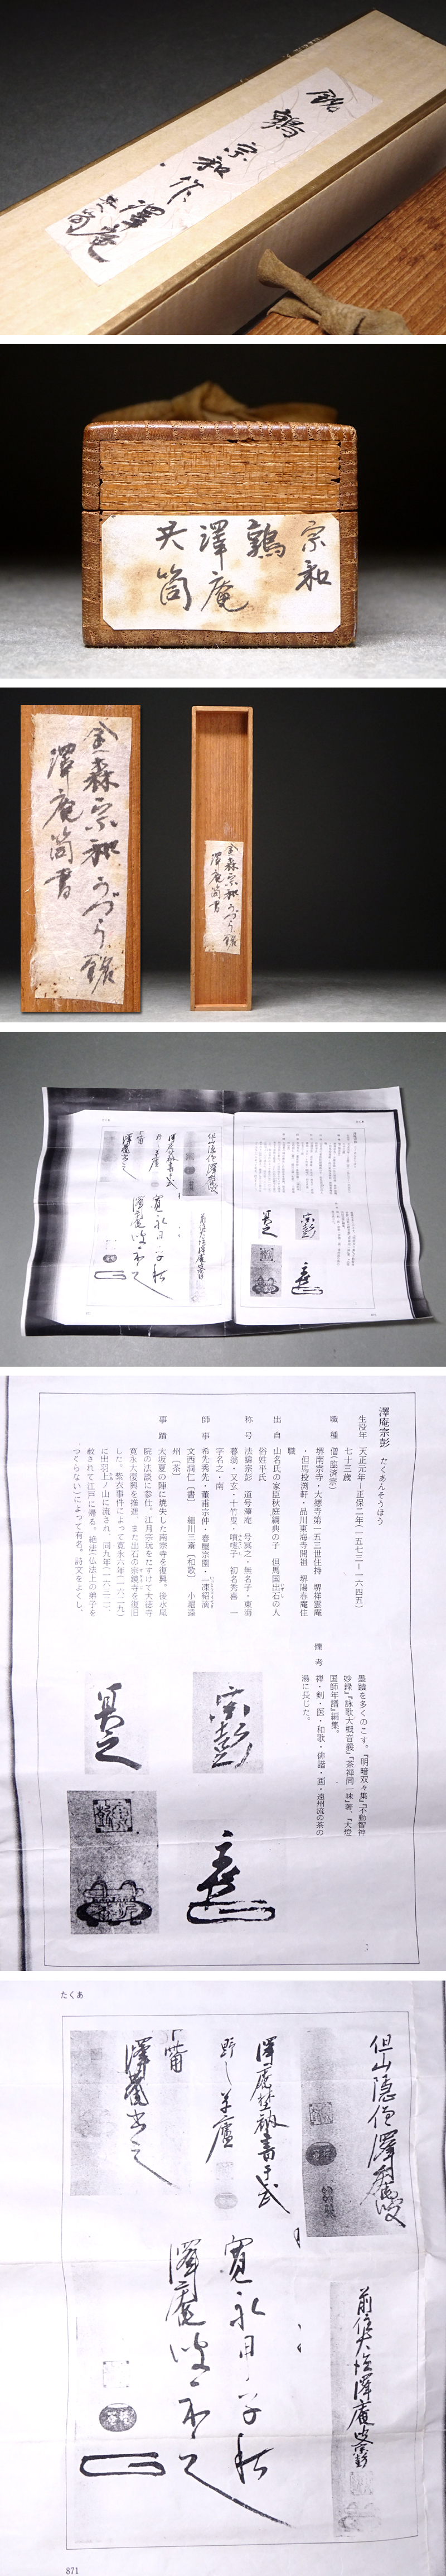 銘
鶉
宗和
作
澤庵
共筒
宗和
鶉
澤庵
共筒
金森宗和うづら銘
澤庵筒書
金森宗和うづら銘
澤庵筒書
澤庵宗彭 たくあんそうほう
生没年 天正元年―正保二年(一五七三―一六四五)
七十三歳
職種 僧(臨済宗)
堺南宗寺・大徳寺第一五三世住持 堺祥雲庵
・但馬投淵軒・品川東海寺開祖 堺陽春庵住
職
出自 山名氏の家臣秋庭綱典の子 但馬国出石の人
俗姓平氏
称号 法諱宗彭 道号澤庵 号冥之・無名子・東海
暮翁・又玄・十竹叟・
初名秀喜 一
字名之・南
師事 希先秀先・董甫宗仲・春屋宗園・一凍紹滴
文西洞仁〔書〕 細川三斎〔和歌〕 小堀遠
州〔茶〕
事蹟 大坂夏の陣に焼失した南宗寺を復興。後水尾
院の法談に参仕。江月宗玩をたすけて大徳寺
寛永大復興を推進。また出石の宗鏡寺を復旧
した。紫衣事件によって寛永六年(一六二九)
に出羽上ノ山に流され、同九年(一六三二)、
赦されて江戸に帰る。絶法(仏法上の弟子を
つくらない)によって有名。詩文をよくし、
墨蹟を多くのこす。『明暗双々集』『不動智神
妙録』『詠歌大概音義』『茶禅同一味』著、『大燈
国師年譜』編集。
備考 禅・剣・医・和歌・俳諧・画・遠州流の茶の
湯に長じた。
宗彭
冥之
たくあ
但山隠僧澤庵叟
澤庵野衲書于武
野之草廬
澤庵書之
前住大徳澤庵叟宗彭
寛永
澤庵叟
871